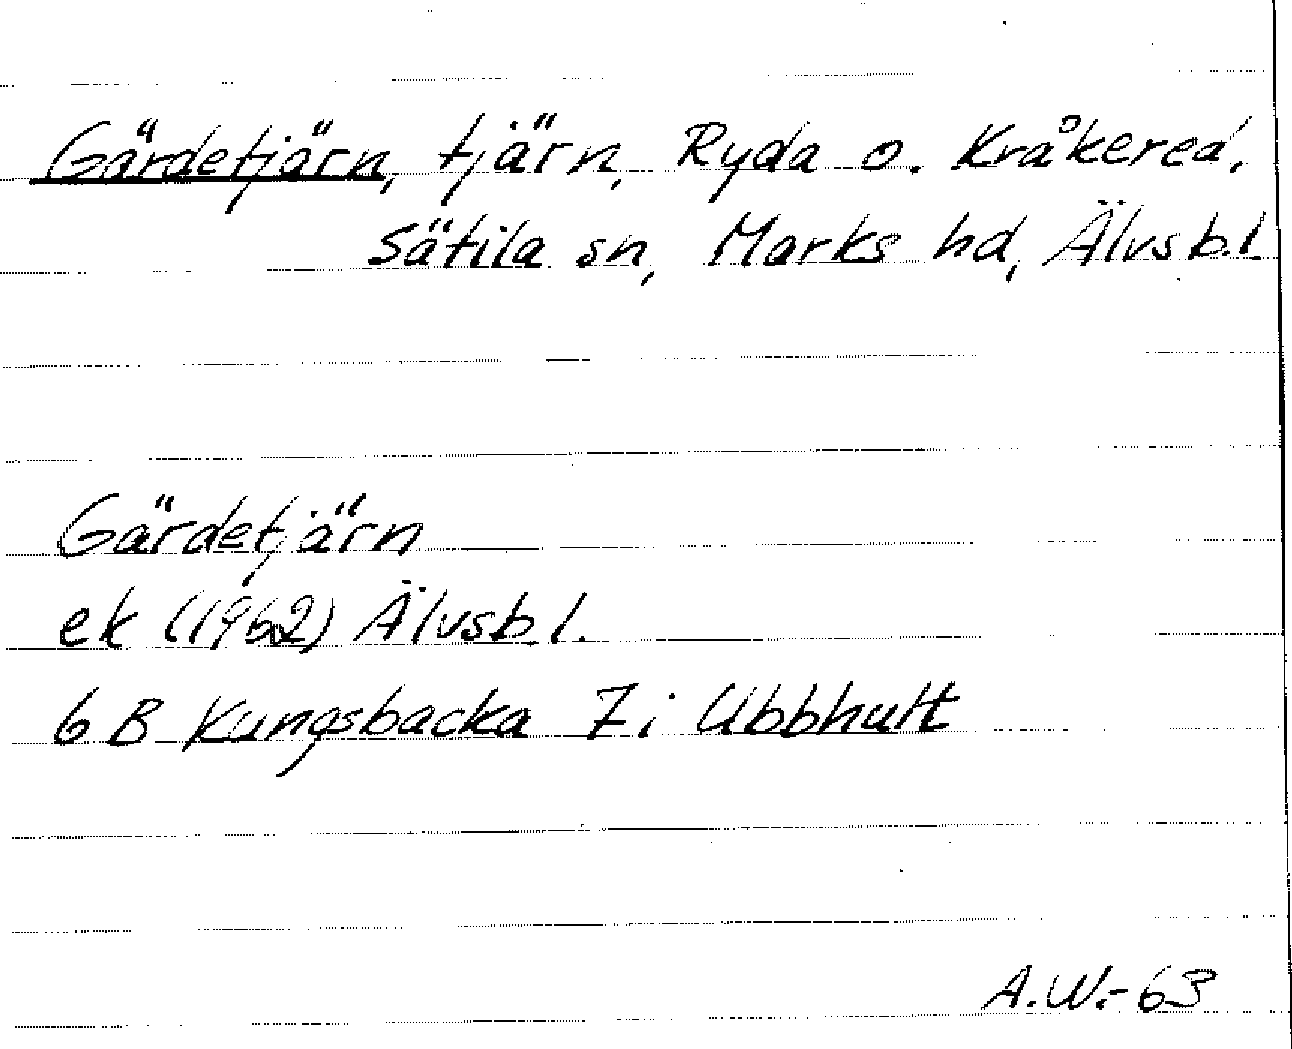 Gärdetjärn, tjärn, Ryda o. Kråkered,
Sätila sn, Marks hd, Älvsb.l.
Gärdetjärn
ek (1962) Älvsb.l.
6 B Kungsbacka 7 i Ubbhult
A.W.-63